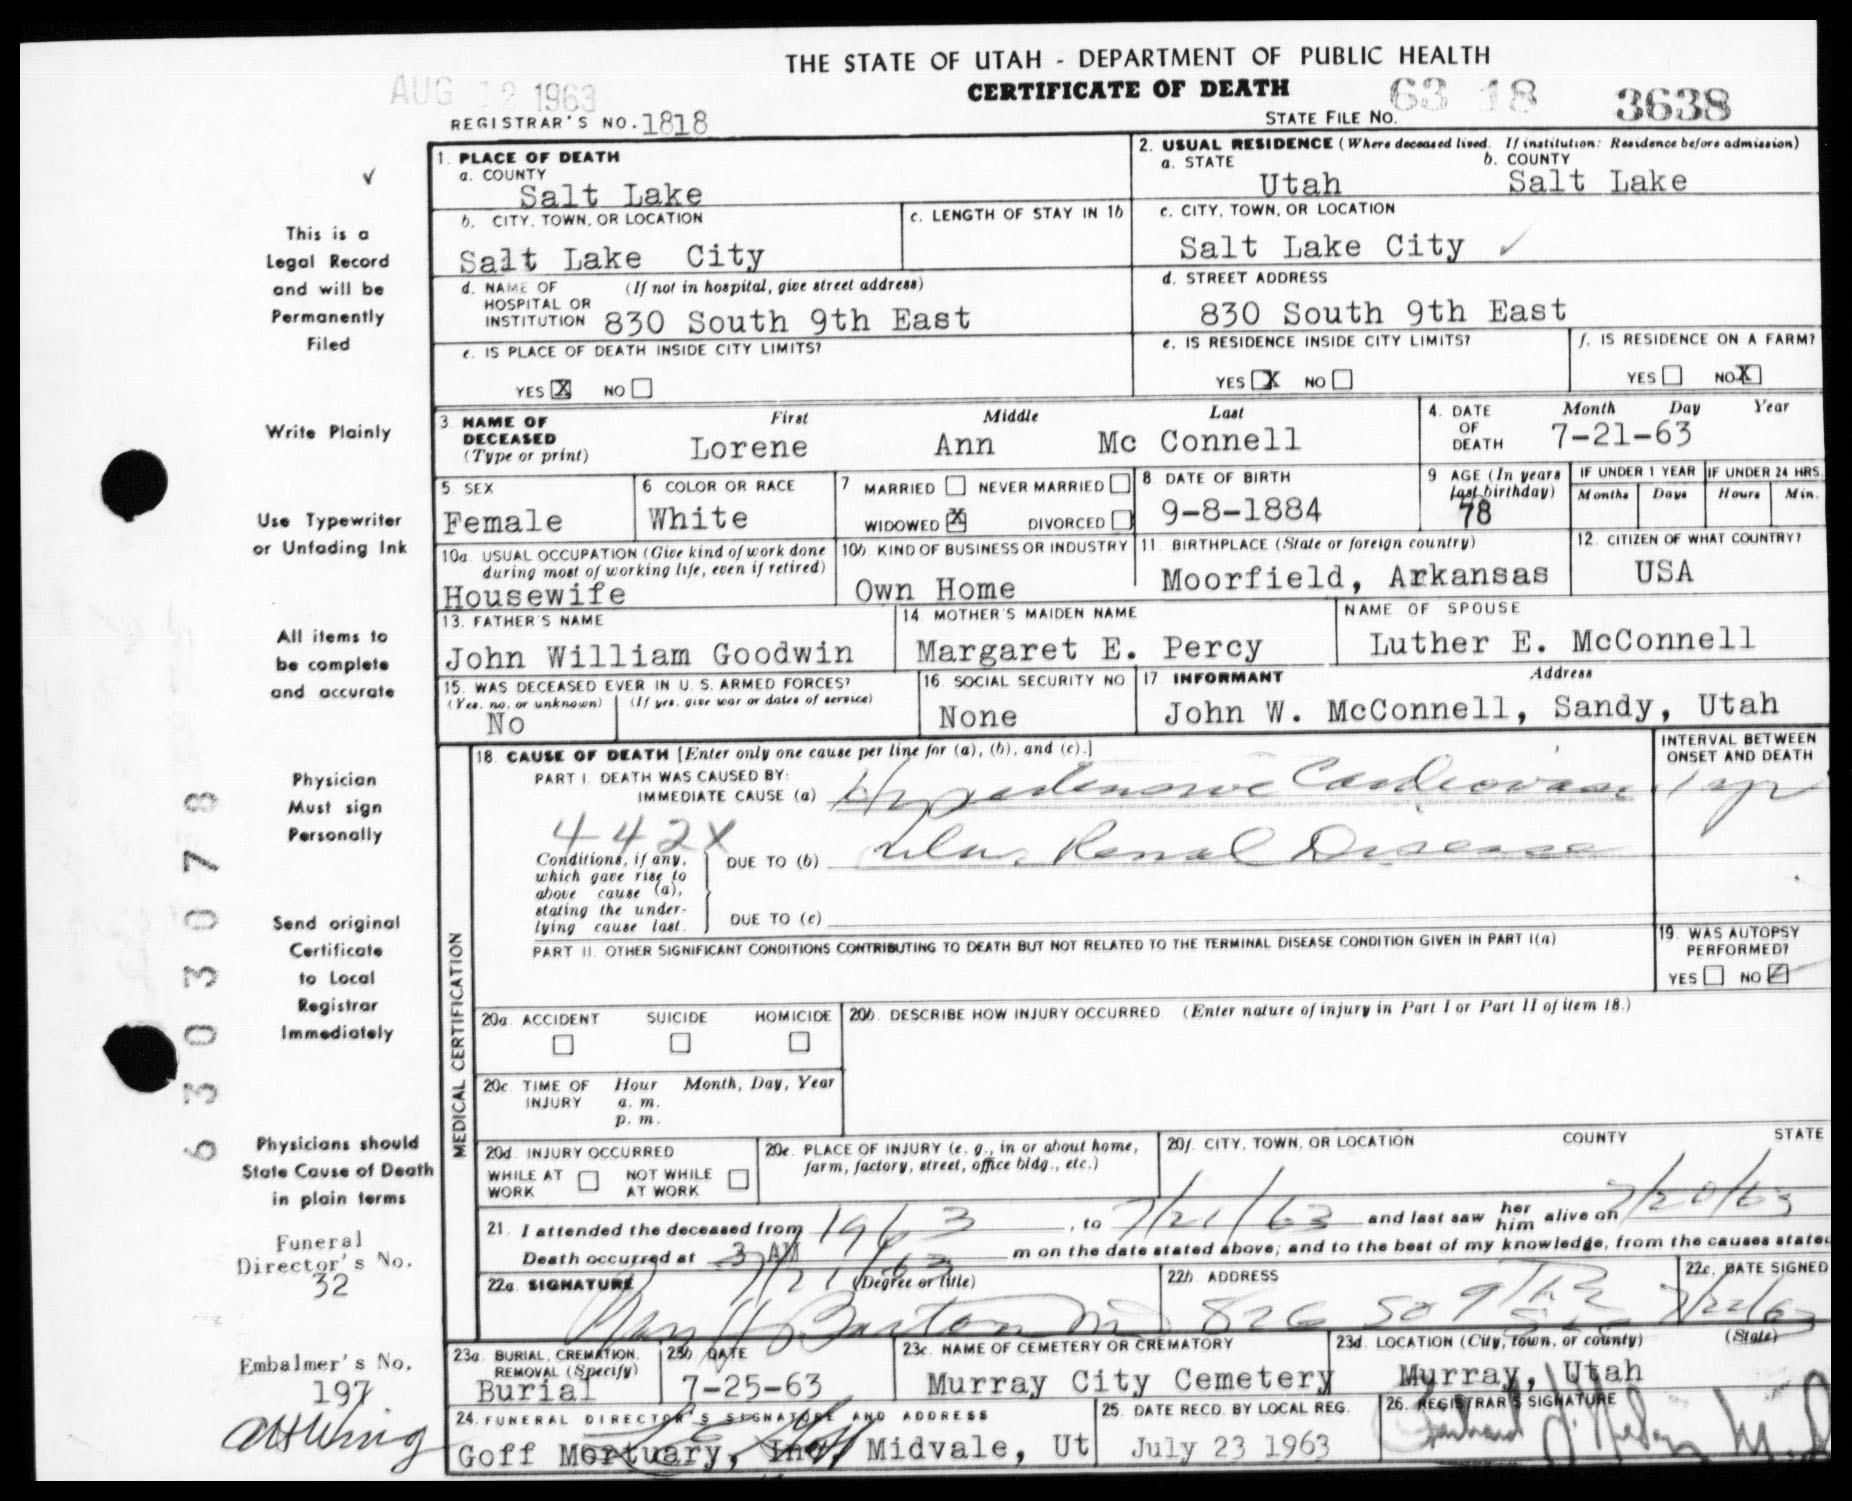 THE STATE OF UTAH - DEPARTMENT OF PUBLIC HEALTH
CERTIFICATE OF DEATH
AUG 12 1963
REGISTRAR'S NO. 1818
STATE FILE NO. 63 18 3638
This is a
Legal Record
and will be
Permanently
Filed
Write Plainly
Use Typewriter
or Unfading Ink
All items to
be complete
and accurate
Physician
Must sign
Personally
Send original
Certificate
to Local
Registrar
Immediately
Physicians should
State Cause of Death
in plain terms
Funeral
Director's No.
32
Embalmer's No.
197
6303078
1. PLACE OF DEATH
a. COUNTY
Salt Lake
b. CITY, TOWN, OR LOCATION
Salt Lake City
c. LENGTH OF STAY IN 1b
d. NAME OF HOSPITAL OR INSTITUTION (If not in hospital, give street address)
830 South 9th East
e. IS PLACE OF DEATH INSIDE CITY LIMITS?
YES X NO
2. USUAL RESIDENCE (Where deceased lived. If institution: Residence before admission)
a. STATE
Utah
b. COUNTY
Salt Lake
c. CITY, TOWN, OR LOCATION
Salt Lake City
d. STREET ADDRESS
830 South 9th East
e. IS RESIDENCE INSIDE CITY LIMITS?
YES X NO
f. IS RESIDENCE ON A FARM?
YES NO X
3. NAME OF DECEASED (Type or print)
First Middle Last
Lorene Ann Mc Connell
4. DATE OF DEATH Month Day Year
7-21-63
5 SEX
Female
6 COLOR OR RACE
White
7 MARRIED NEVER MARRIED
WIDOWED X DIVORCED
8. DATE OF BIRTH
9-8-1884
9 AGE (In years last birthday)
78
IF UNDER 1 YEAR
Months Days
IF UNDER 24 HRS.
Hours Min.
10a. USUAL OCCUPATION (Give kind of work done during most of working life, even if retired)
Housewife
10b. KIND OF BUSINESS OR INDUSTRY
Own Home
11. BIRTHPLACE (State or foreign country)
Moorfield, Arkansas
12. CITIZEN OF WHAT COUNTRY?
USA
13. FATHER'S NAME
John William Goodwin
14. MOTHER'S MAIDEN NAME
Margaret E. Percy
NAME OF SPOUSE
Luther E. McConnell
15. WAS DECEASED EVER IN U. S. ARMED FORCES?
(Yes, no, or unknown) (If yes, give war or dates of service)
No
16. SOCIAL SECURITY NO
None
17. INFORMANT Address
John W. McConnell, Sandy, Utah
MEDICAL CERTIFICATION
18. CAUSE OF DEATH [Enter only one cause per line for (a), (b), and (c).]
INTERVAL BETWEEN ONSET AND DEATH
PART I. DEATH WAS CAUSED BY:
IMMEDIATE CAUSE (a) Hypertensive Cardiovas 1 yr
442X
Conditions, if any, which gave rise to above cause (a), stating the underlying cause last.
DUE TO (b) cular Renal Disease
DUE TO (c)
PART II. OTHER SIGNIFICANT CONDITIONS CONTRIBUTING TO DEATH BUT NOT RELATED TO THE TERMINAL DISEASE CONDITION GIVEN IN PART I(a)
19. WAS AUTOPSY PERFORMED?
YES NO
20a. ACCIDENT SUICIDE HOMICIDE
20b. DESCRIBE HOW INJURY OCCURRED. (Enter nature of injury in Part I or Part II of item 18.)
20c. TIME OF INJURY Hour Month, Day, Year
a. m.
p. m.
20d. INJURY OCCURRED
WHILE AT WORK NOT WHILE AT WORK
20e. PLACE OF INJURY (e. g., in or about home, farm, factory, street, office bldg., etc.)
20f. CITY, TOWN, OR LOCATION COUNTY STATE
21. I attended the deceased from 1963, to 7/21/63 and last saw her him alive on 7/20/63
Death occurred at 3 AM 7/21/63 m on the date stated above; and to the best of my knowledge, from the causes stated
22a. SIGNATURE (Degree or title)
22b. ADDRESS
826 So 9th
22c. DATE SIGNED
7/22/63
23a. BURIAL, CREMATION, REMOVAL (Specify)
Burial
23b. DATE
7-25-63
23c. NAME OF CEMETERY OR CREMATORY
Murray City Cemetery
23d. LOCATION (City, town, or county) (State)
Murray, Utah
24. FUNERAL DIRECTOR'S SIGNATURE AND ADDRESS
Goff Mortuary, Inc, Midvale, Ut
25. DATE RECD. BY LOCAL REG.
July 23 1963
26. REGISTRAR'S SIGNATURE